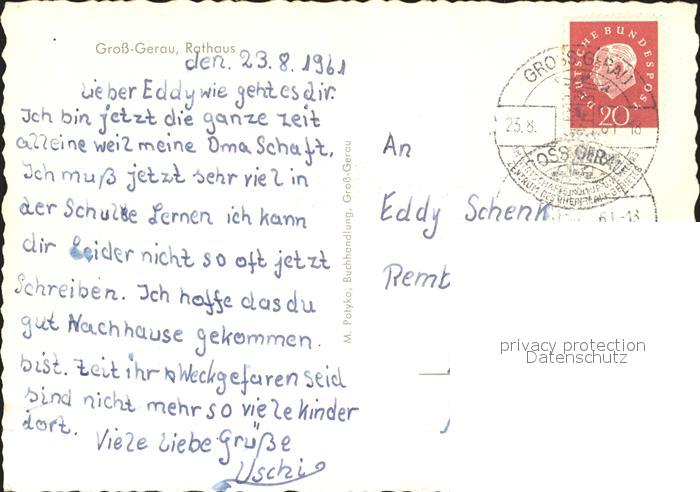 Groß-Gerau, Rathaus
den. 23.8.1961
Lieber Eddy wie geht es dir.
Ich bin jetzt die ganze zeit
alleine weil meine Oma Schaft.
Ich muß jetzt sehr viel in
der Schule Lernen ich kann
dir Leider nicht so oft jetzt
Schreiben. Ich hoffe das du
gut Nachhause gekommen.
bist. Zeit ihr Weckgefaren seid
sind nicht mehr so viele kinder
dort. Viele Liebe Grüße
Uschi
M. Potyka, Buchhandlung, Groß-Gerau
DEUTSCHE BUNDESPOST
20
GROSS-GERAU
23.8.61-18
GROSS-GERAU
61-18
An
Eddy Schenk
Remb
privacy protection
Datenschutz